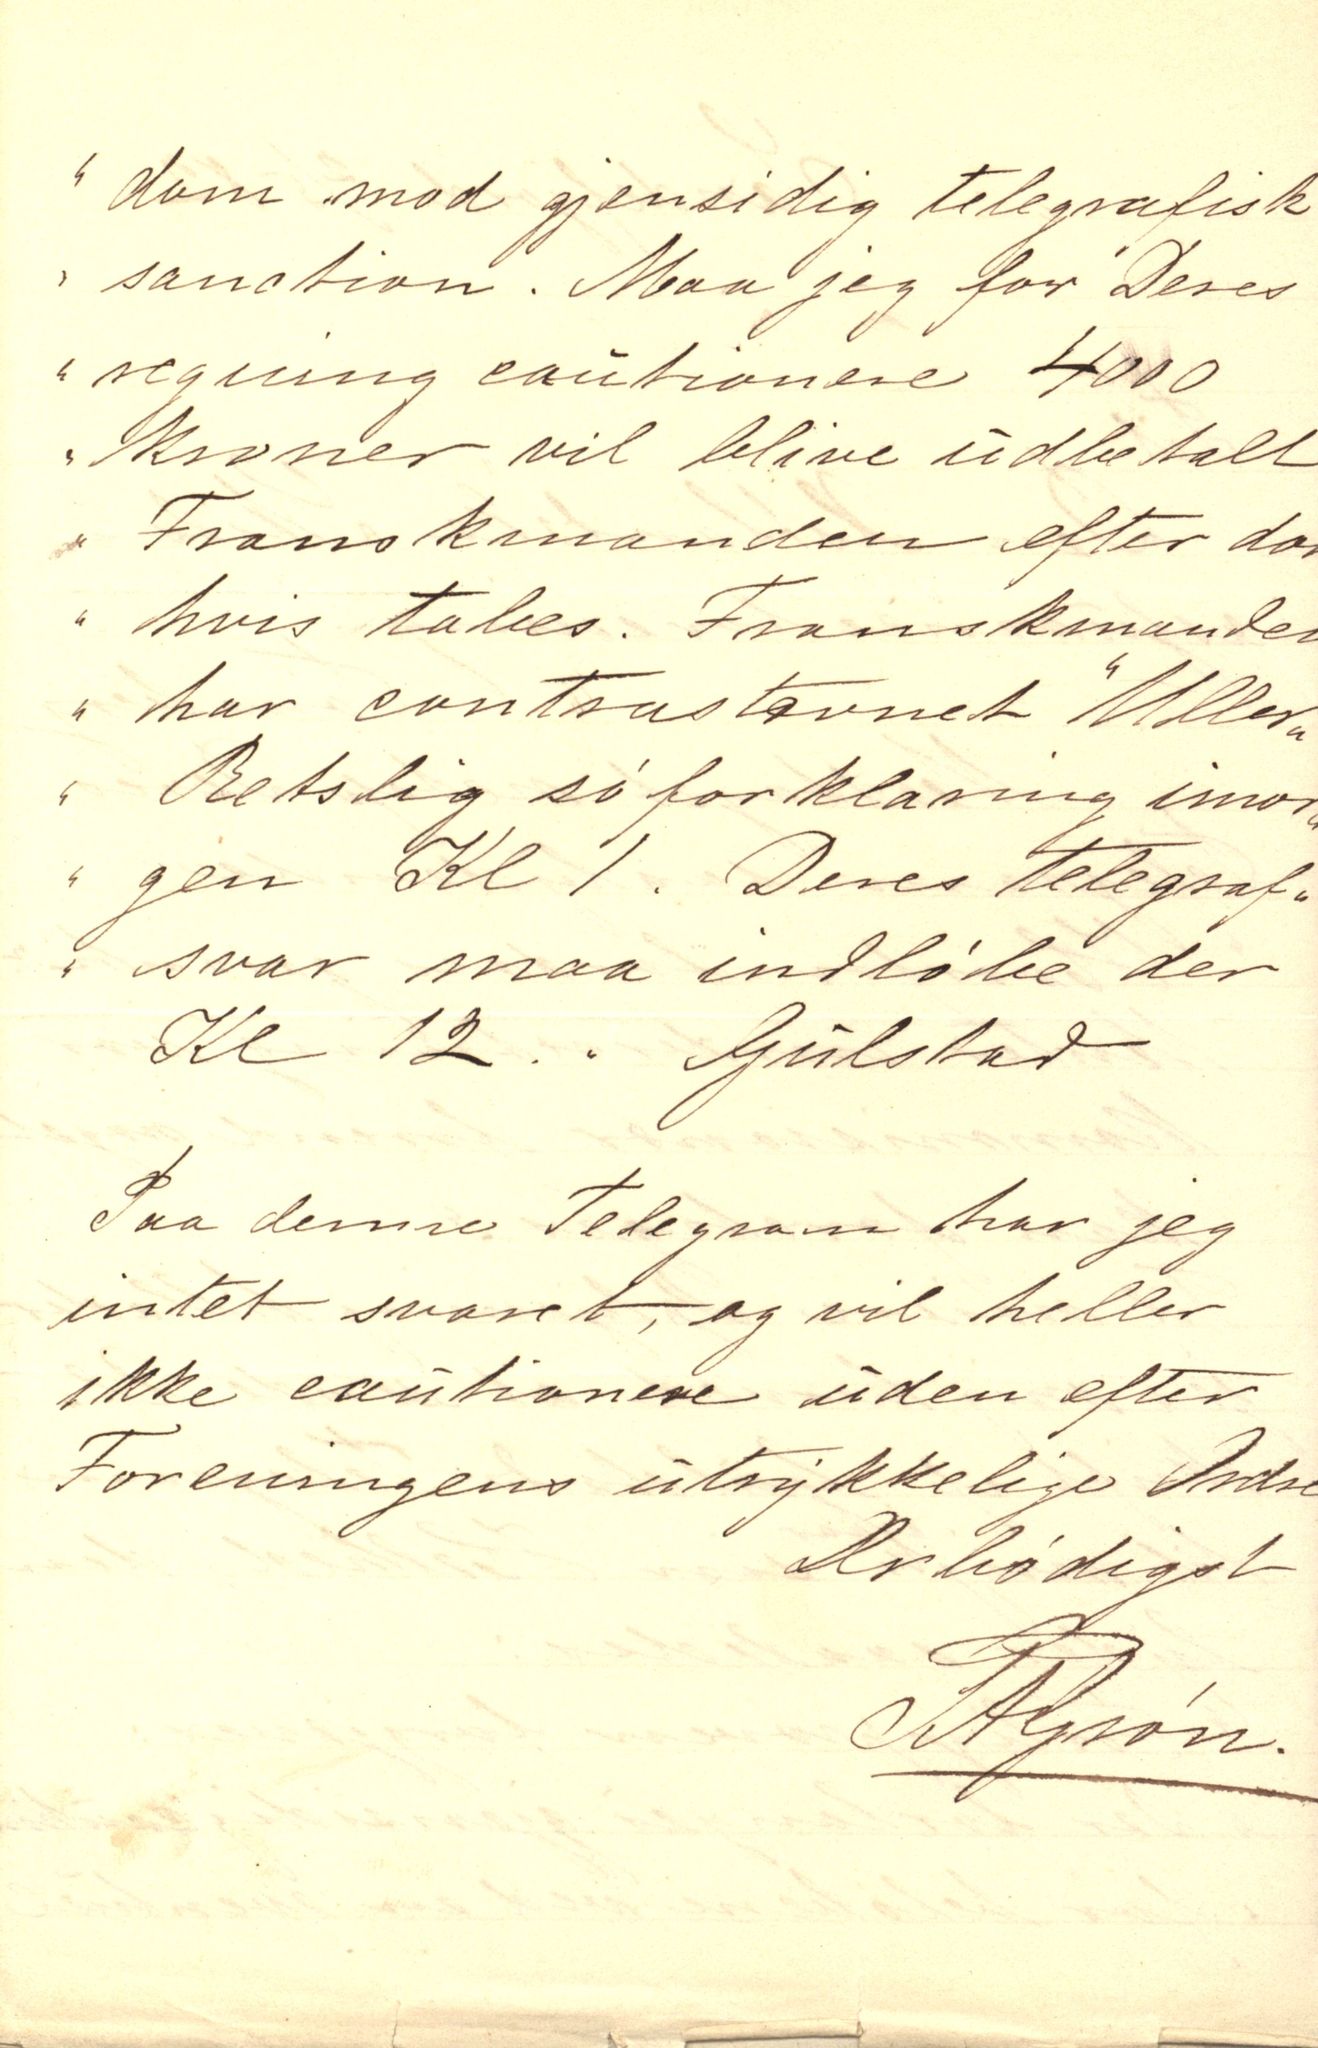 " dom mod gjensidig telegrafisk
" sanction. Maa jeg for Deres
" regning caútionere 4000
" kroner vil blive údbetalt
" Franskmanden efter dom
" hvis tabes. Franskmanden
" har contrastævnet "Uller"
" Retslig søforklaring imor
" gen Kl 1. Deres telegraf"
" svar maa indløbe der
Kl 12. " Gúlstad
Paa denne Telegram har jeg
intet svaret, og vil heller
ikke caútionere úden efter
Foreningens útrykkelige Ordre
Ærbødigst
Grøn.